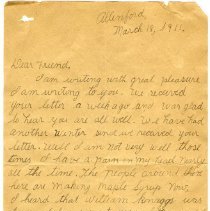 Allenford,
March 18, 1911.
Dear Friend,
I am writing with great pleasure
I am writing to you. We received
your letter a week ago and was glad
to hear you are all well. We have had
another winter since we received your
letter. Well I am not very well
those times I have a pain in my head nearly
all the time. The people around there
here are Making Maple Syrup Now.
I heard that William